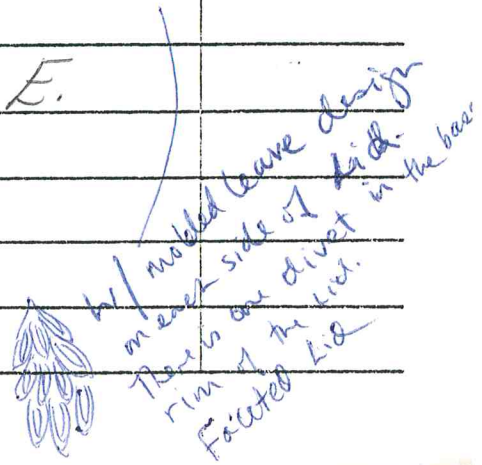 E.
w/ molded leave design
on each side of Lid.
There is one divet in the base
rim of the Lid.
Faceted Lid